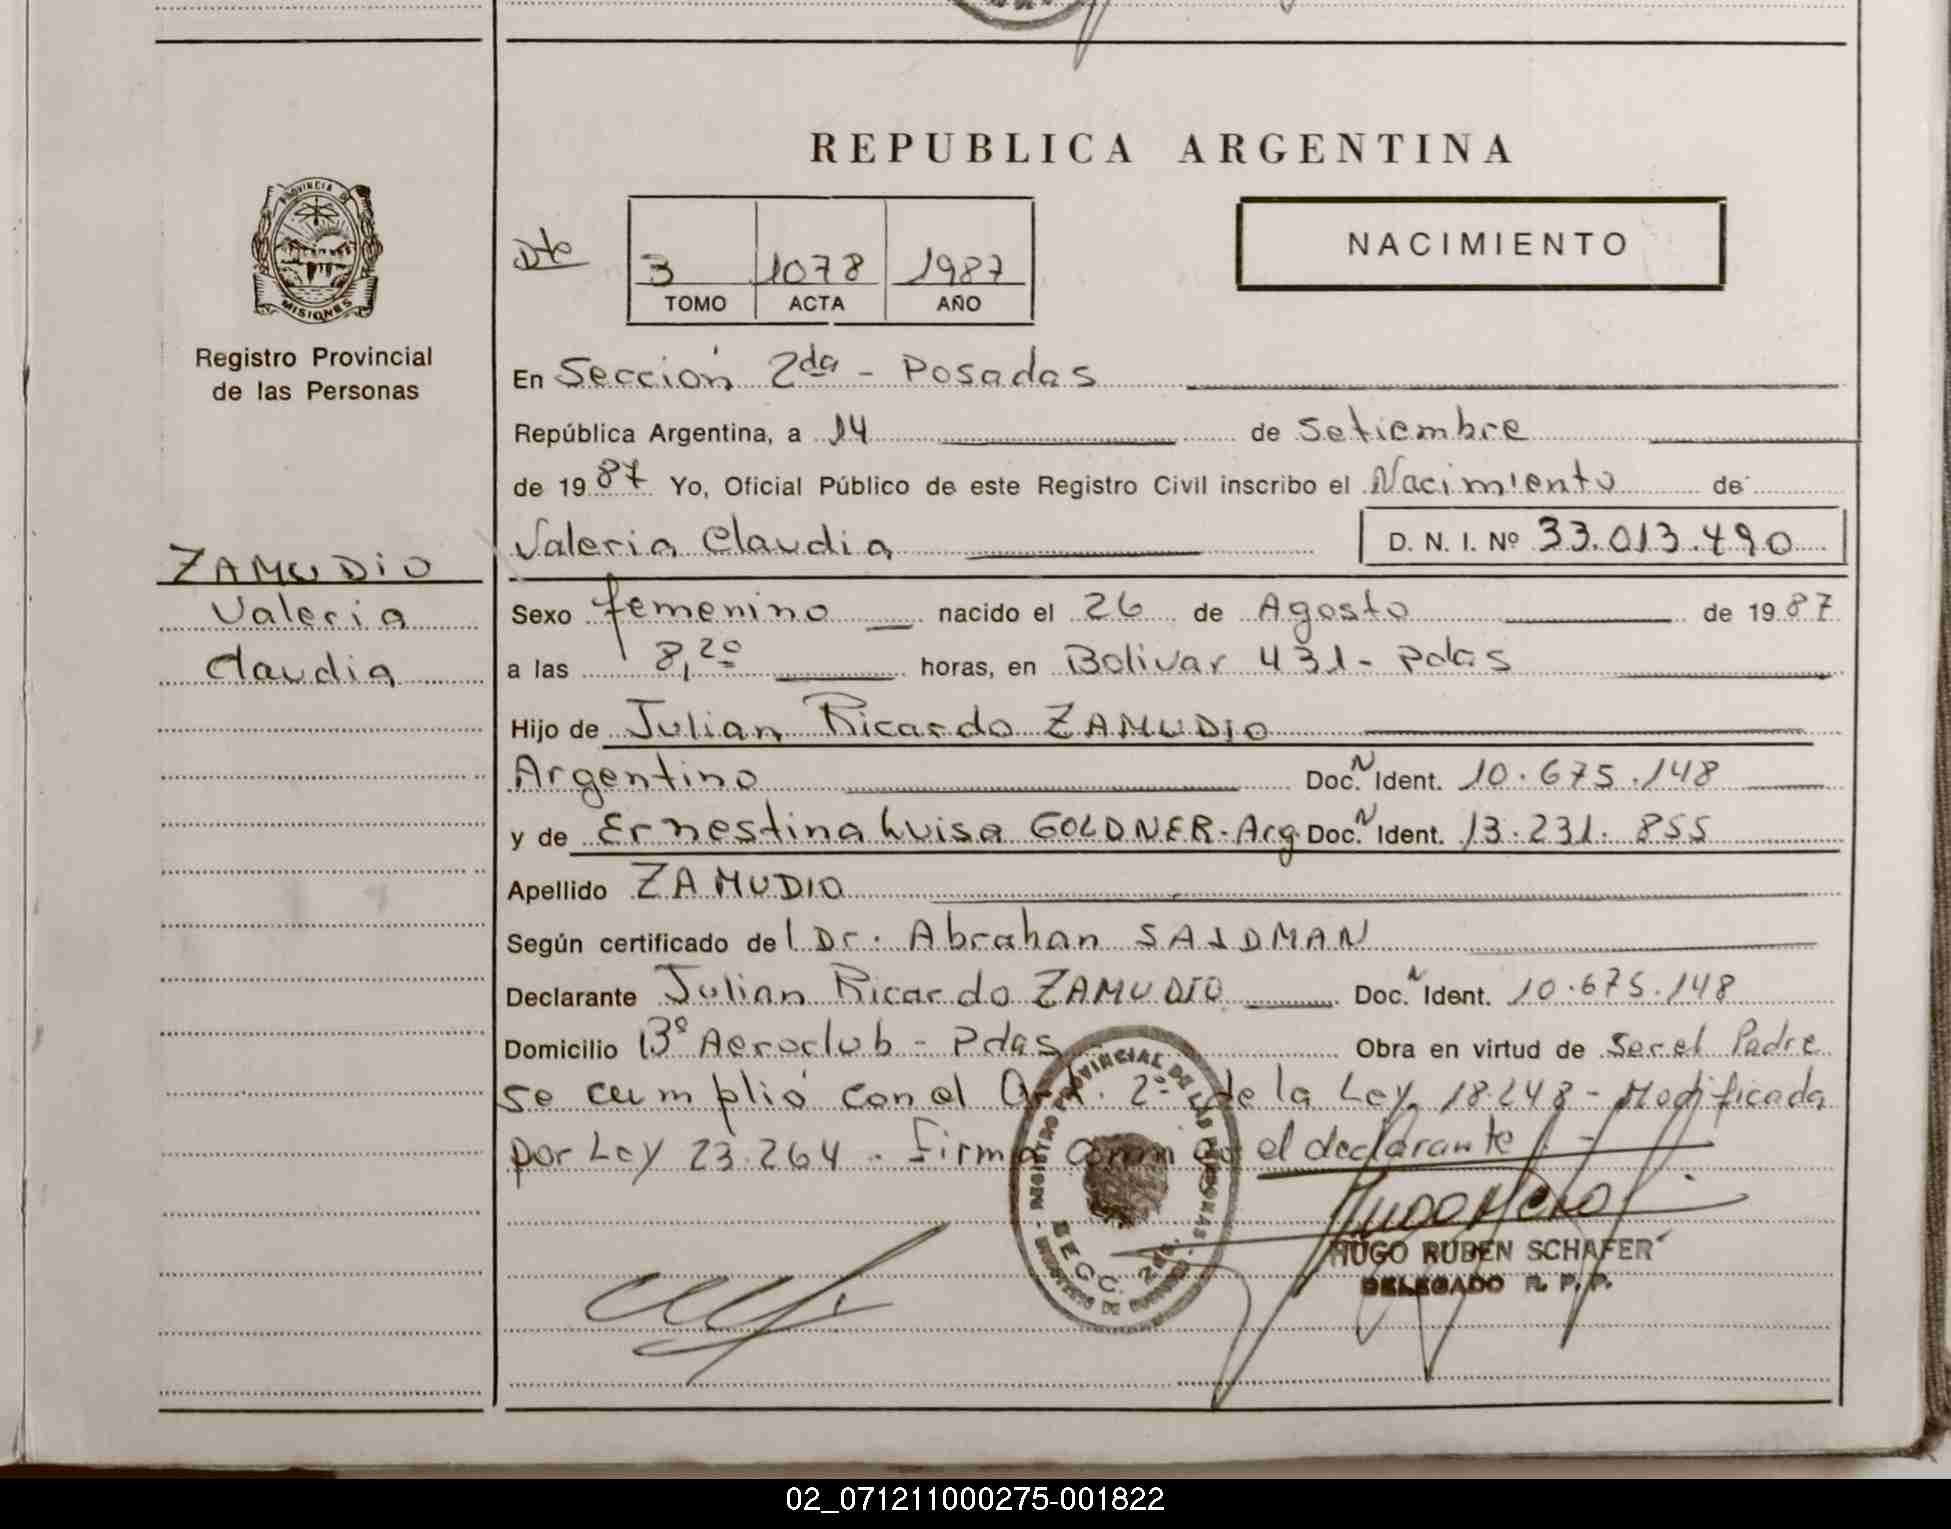 REPUBLICA ARGENTINA
PROVINCIA DE MISIONES
Registro Provincial
de las Personas
Dte
3 1078 1987
TOMO ACTA AÑO
NACIMIENTO
En Sección 2da - Posadas
República Argentina, a 14 de Setiembre
de 1987 Yo, Oficial Público de este Registro Civil inscribo el Nacimiento de
Valeria Claudia D. N. I. Nº 33.013.490
ZAMUDIO
Valeria
Claudia
Sexo femenino nacido el 26 de Agosto de 1987
a las 8,20 horas, en Bolivar 431 - Pdas
Hijo de Julian Ricardo ZAMUDIO
Argentino Doc. N Ident. 10.675.148
y de Ernestina Luisa GOLDNER - Arg. Doc. N Ident. 13.231.855
Apellido ZAMUDIO
Según certificado del Dr. Abrahan SAIDMAN
Declarante Julian Ricardo ZAMUDIO Doc. N Ident. 10.675.148
Domicilio Bº Aeroclub - Pdas Obra en virtud de ser el Padre
se cumplió con el Art. 2º de la Ley 18.248 - Modificada
por Ley 23.264 - Firma el declarante
REGISTRO PROVINCIAL DE LAS PERSONAS
SECC. 2da.
HUGO RUBEN SCHAFER
DELEGADO R. P. P.
02_071211000275-001822